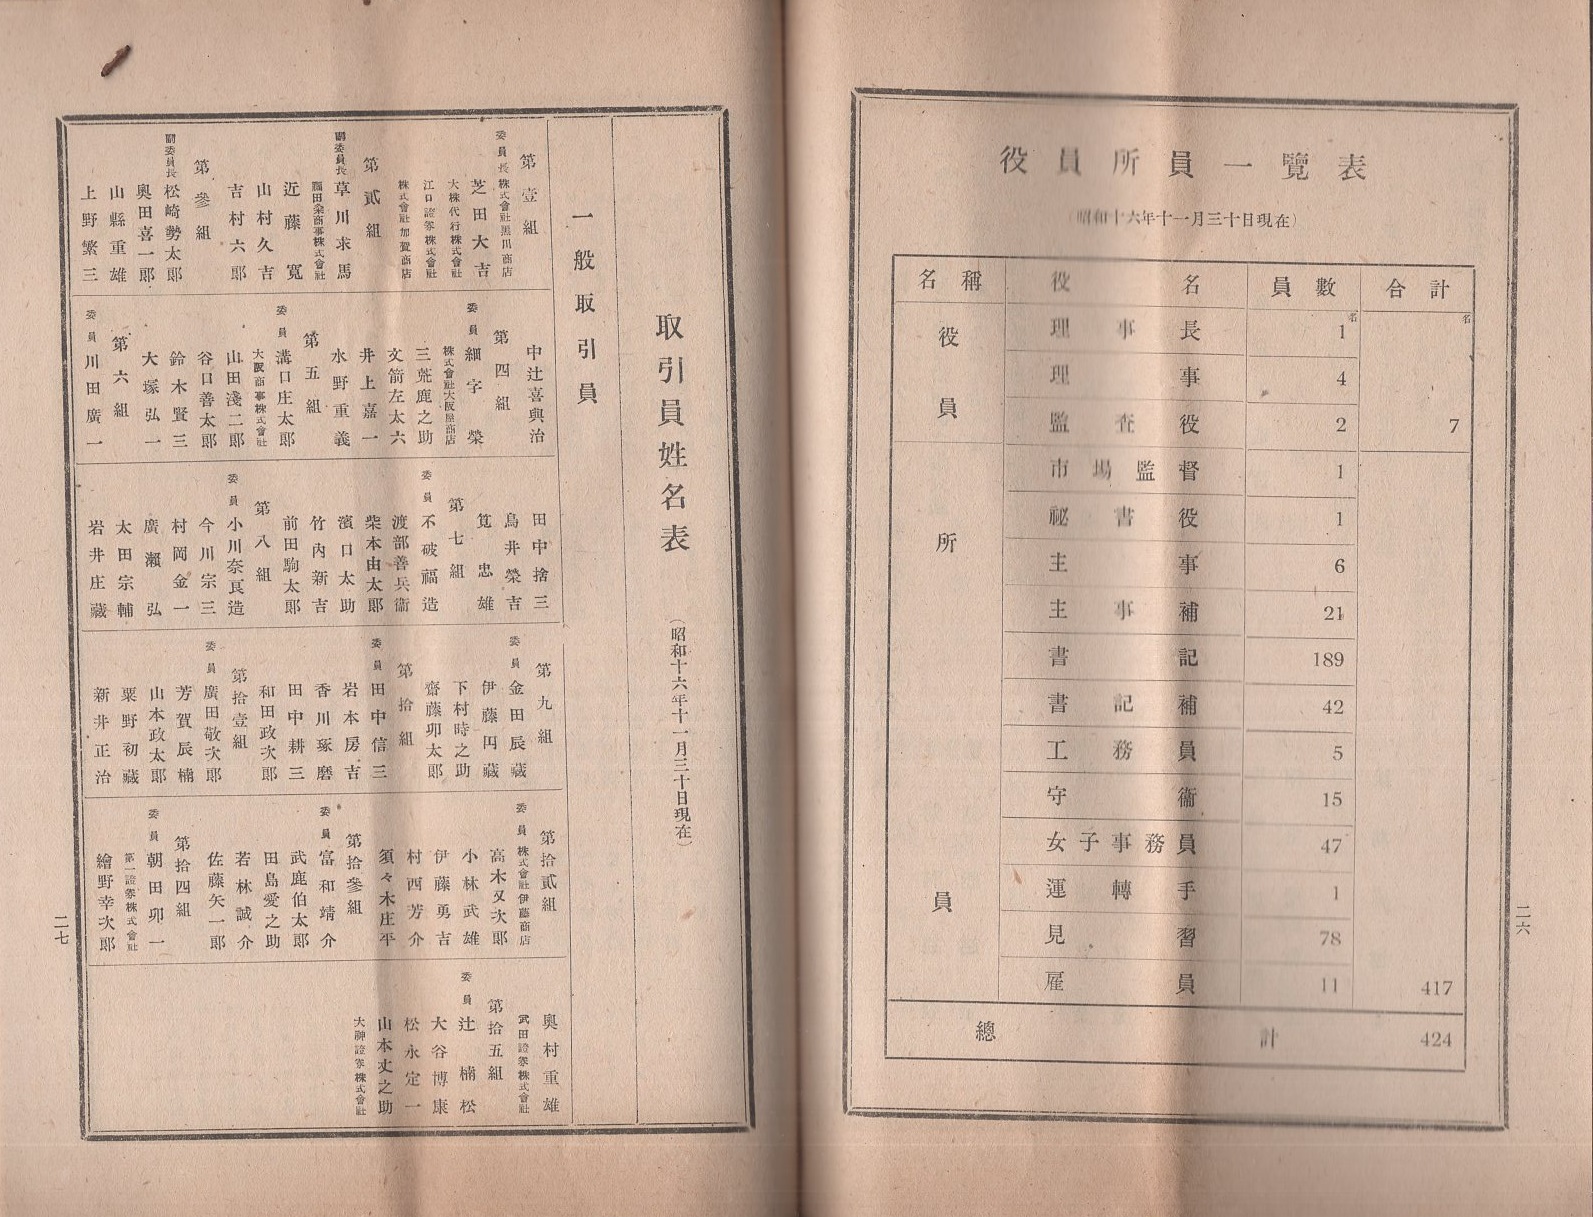 役員所員一覽表
（昭和十六年十一月三十日現在）
名稱 役名 員數 合計
役員 理事長 1名 名
理事 4
監査役 2 7
所員 市場監督 1
祕書役 1
主事 6
主事補 21
書記 189
書記補 42
工務員 5
守衞 15
女子事務員 47
運轉手 1
見習 78
雇員 11 417
總計 424
二六
取引員姓名表
（昭和十六年十一月三十日現在）
一般取引員
第壹組
委員長 株式會社黑川商店
芝田大吉
大株代行株式會社
江口證券株式會社
株式會社加賀商店
第貳組
副委員長 草川求馬
福田染商事株式會社
近藤寬
山村久吉
吉村六郎
第參組
副委員長 松崎勢太郎
奧田喜一郎
山縣重雄
上野繁三
中辻喜與治
第四組
委員 細字榮
株式會社大阪屋商店
三荒鹿之助
文箭左太六
井上嘉一
水野重義
第五組
委員 溝口庄太郎
大阪商事株式會社
山田淺二郎
谷口善太郎
鈴木賢三
大塚弘一
第六組
委員 川田廣一
田中捨三
鳥井榮吉
筧忠雄
第七組
委員 不破福造
渡部善兵衞
柴本由太郎
濱口太助
竹內新吉
前田駒太郎
第八組
委員 小川奈良造
今川宗三
村岡金一
廣瀨弘
太田宗輔
岩井庄藏
第九組
委員 金田辰藏
伊藤円藏
下村時之助
齋藤卯太郎
第拾組
委員 田中信三
岩本房吉
香川琢磨
田中耕三
和田政次郎
第拾壹組
委員 廣田敬次郎
芳賀辰楠
山本政太郎
粟野初藏
新井正治
第拾貳組
委員 株式會社伊藤商店
高木又次郎
小林武雄
伊藤勇吉
村西芳介
須々木庄平
第拾參組
委員 富和靖介
武鹿伯太郎
田島愛之助
若林誠介
佐藤矢一郎
第拾四組
委員 朝田卯一
第一證券株式會社
繪野幸次郎
奧村重雄
武田證券株式會社
第拾五組
委員 辻楠松
大谷博康
松永定一
山本丈之助
大神證券株式會社
二七